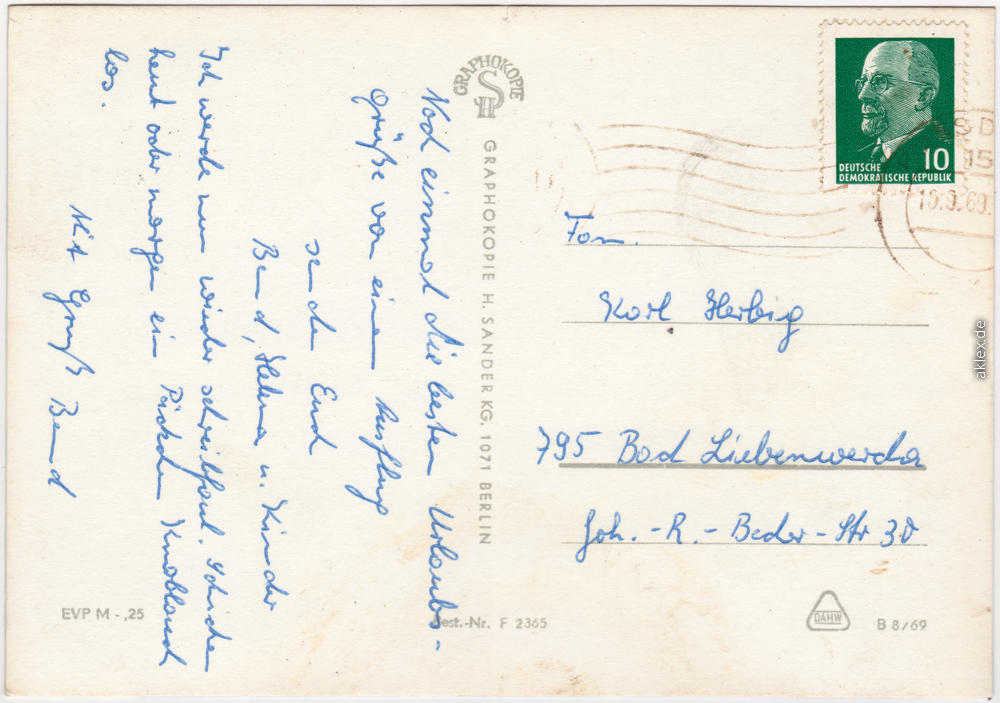 Noch einmal die besten Urlaubs-
grüße von einem Ausflug
senden Euch
Bernd, Helena u. Kinder
Ich werde nun wieder schreibfaul. Schicken
heut oder morgen ein Päckchen Knoblauch
los.
Mit Gruß Bernd
GRAPHOKOPIE
SH
GRAPHOKOPIE H. SANDER KG. 1071 BERLIN
DEUTSCHE
DEMOKRATISCHE REPUBLIK
10
Fam.
Karl Herbig
795 Bad Liebenwerda
Joh.-R.-Becher-Str 30
EVP M -,25
Best.-Nr. F 2365
DAHW
B 8/69
aklex.de